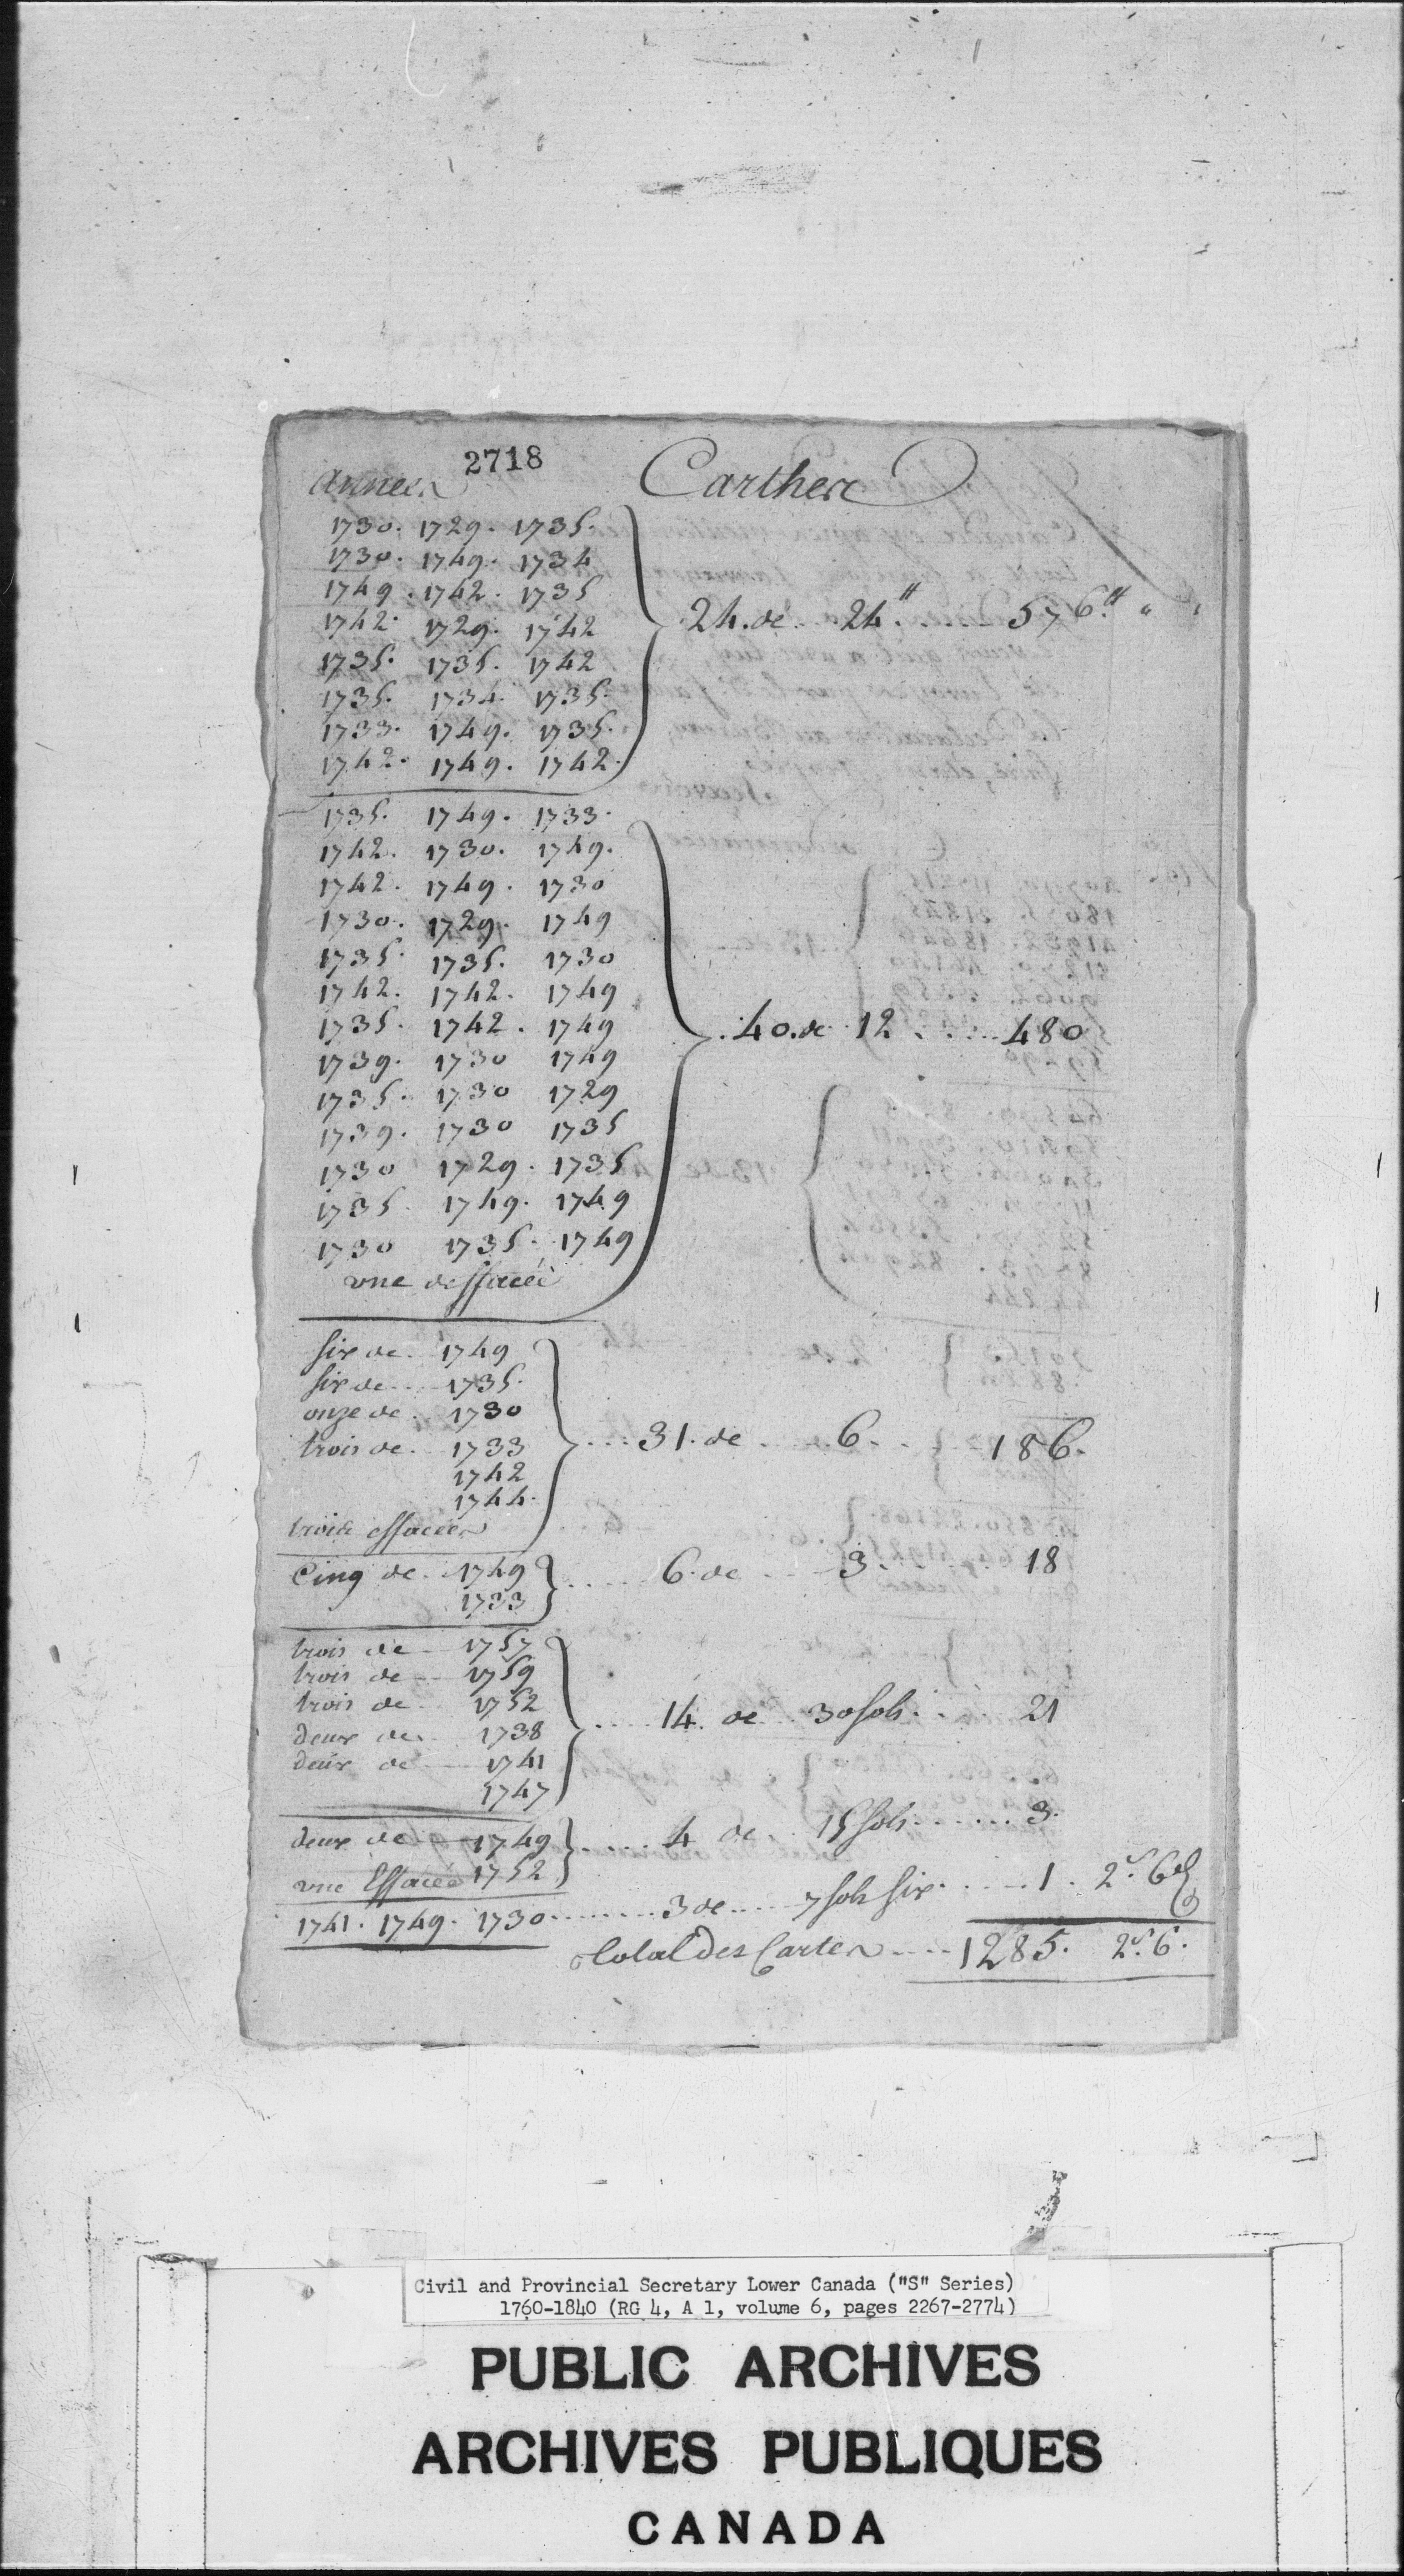 2718
année Carthes
1730. 1729. 1735.
1730. 1749. 1734
1749. 1742. 1735
1742. 1729. 1742 24. de 24.# 576.#
1735. 1735. 1742
1735. 1734. 1735.
1733. 1749. 1735.
1742. 1749. 1742.
1735. 1749. 1733.
1742. 1730. 1749.
1742. 1749. 1730
1730. 1729. 1749
1735. 1735. 1730
1742. 1742. 1749
1735. 1742. 1749 40. de 12 480
1739. 1730 1749
1735. 1730 1729
1739. 1730 1735
1730 1729. 1735
1735. 1749. 1749
1730 1735. 1749
une deffacée
six de 1749
six de 1735.
onze de 1730
trois de 1733 31. de 6 186.
1742
1744.
trois effacées
Cinq de 1749 6. de 3 18
1733
trois de 1757
trois de 1759
trois de 1752 14. de 30 sols 21
deux de 1738
deux de 1741
1747
deux de 1749 4 de 15 sols 3.
une Effacée 1752
1741. 1749. 1730 3 de 7 sols six 1. 2s. 6d
Total Des Cartes 1285. 2s. 6.
Civil and Provincial Secretary Lower Canada ("S" Series)
1760-1840 (RG 4, A 1, volume 6, pages 2267-2774)
PUBLIC ARCHIVES
ARCHIVES PUBLIQUES
CANADA